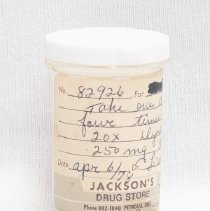 No. 82926 For
Take one
four times
20x
250 mg
Date Apr 6/78
JACKSON'S
DRUG STORE
Phone 882-1840 PETROLIA, ONT.